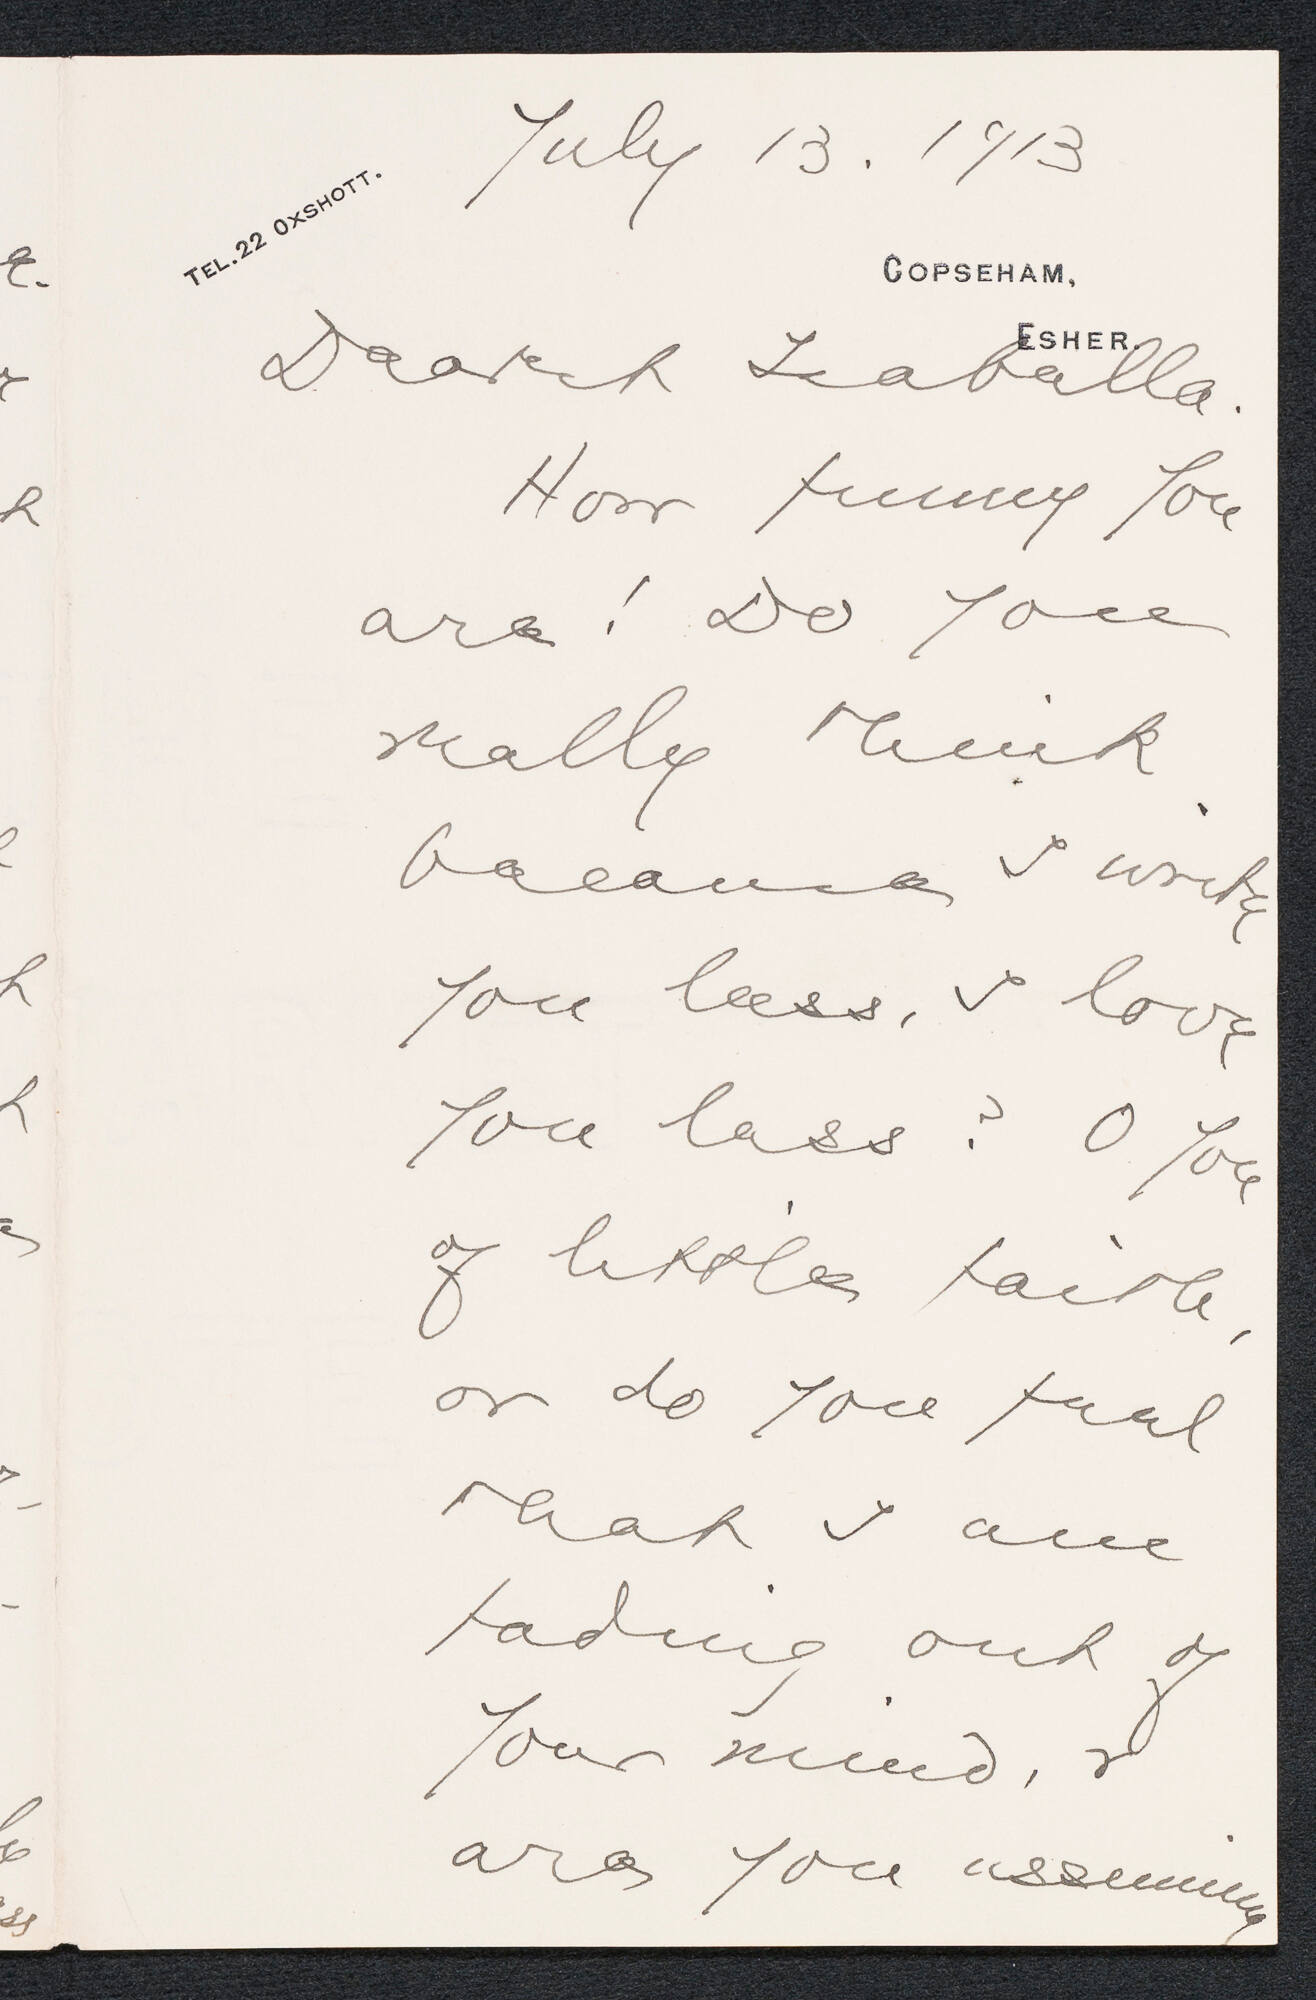 July 13. 1913
TEL. 22 OXSHOTT.
COPSEHAM,
ESHER.
Dearest Isabella.
How funny you
are! Do you
really think
because I write
you less, I love
you less? O you
of little faith,
or do you feel
that I am
fading out of
your mind, &
are you assuming